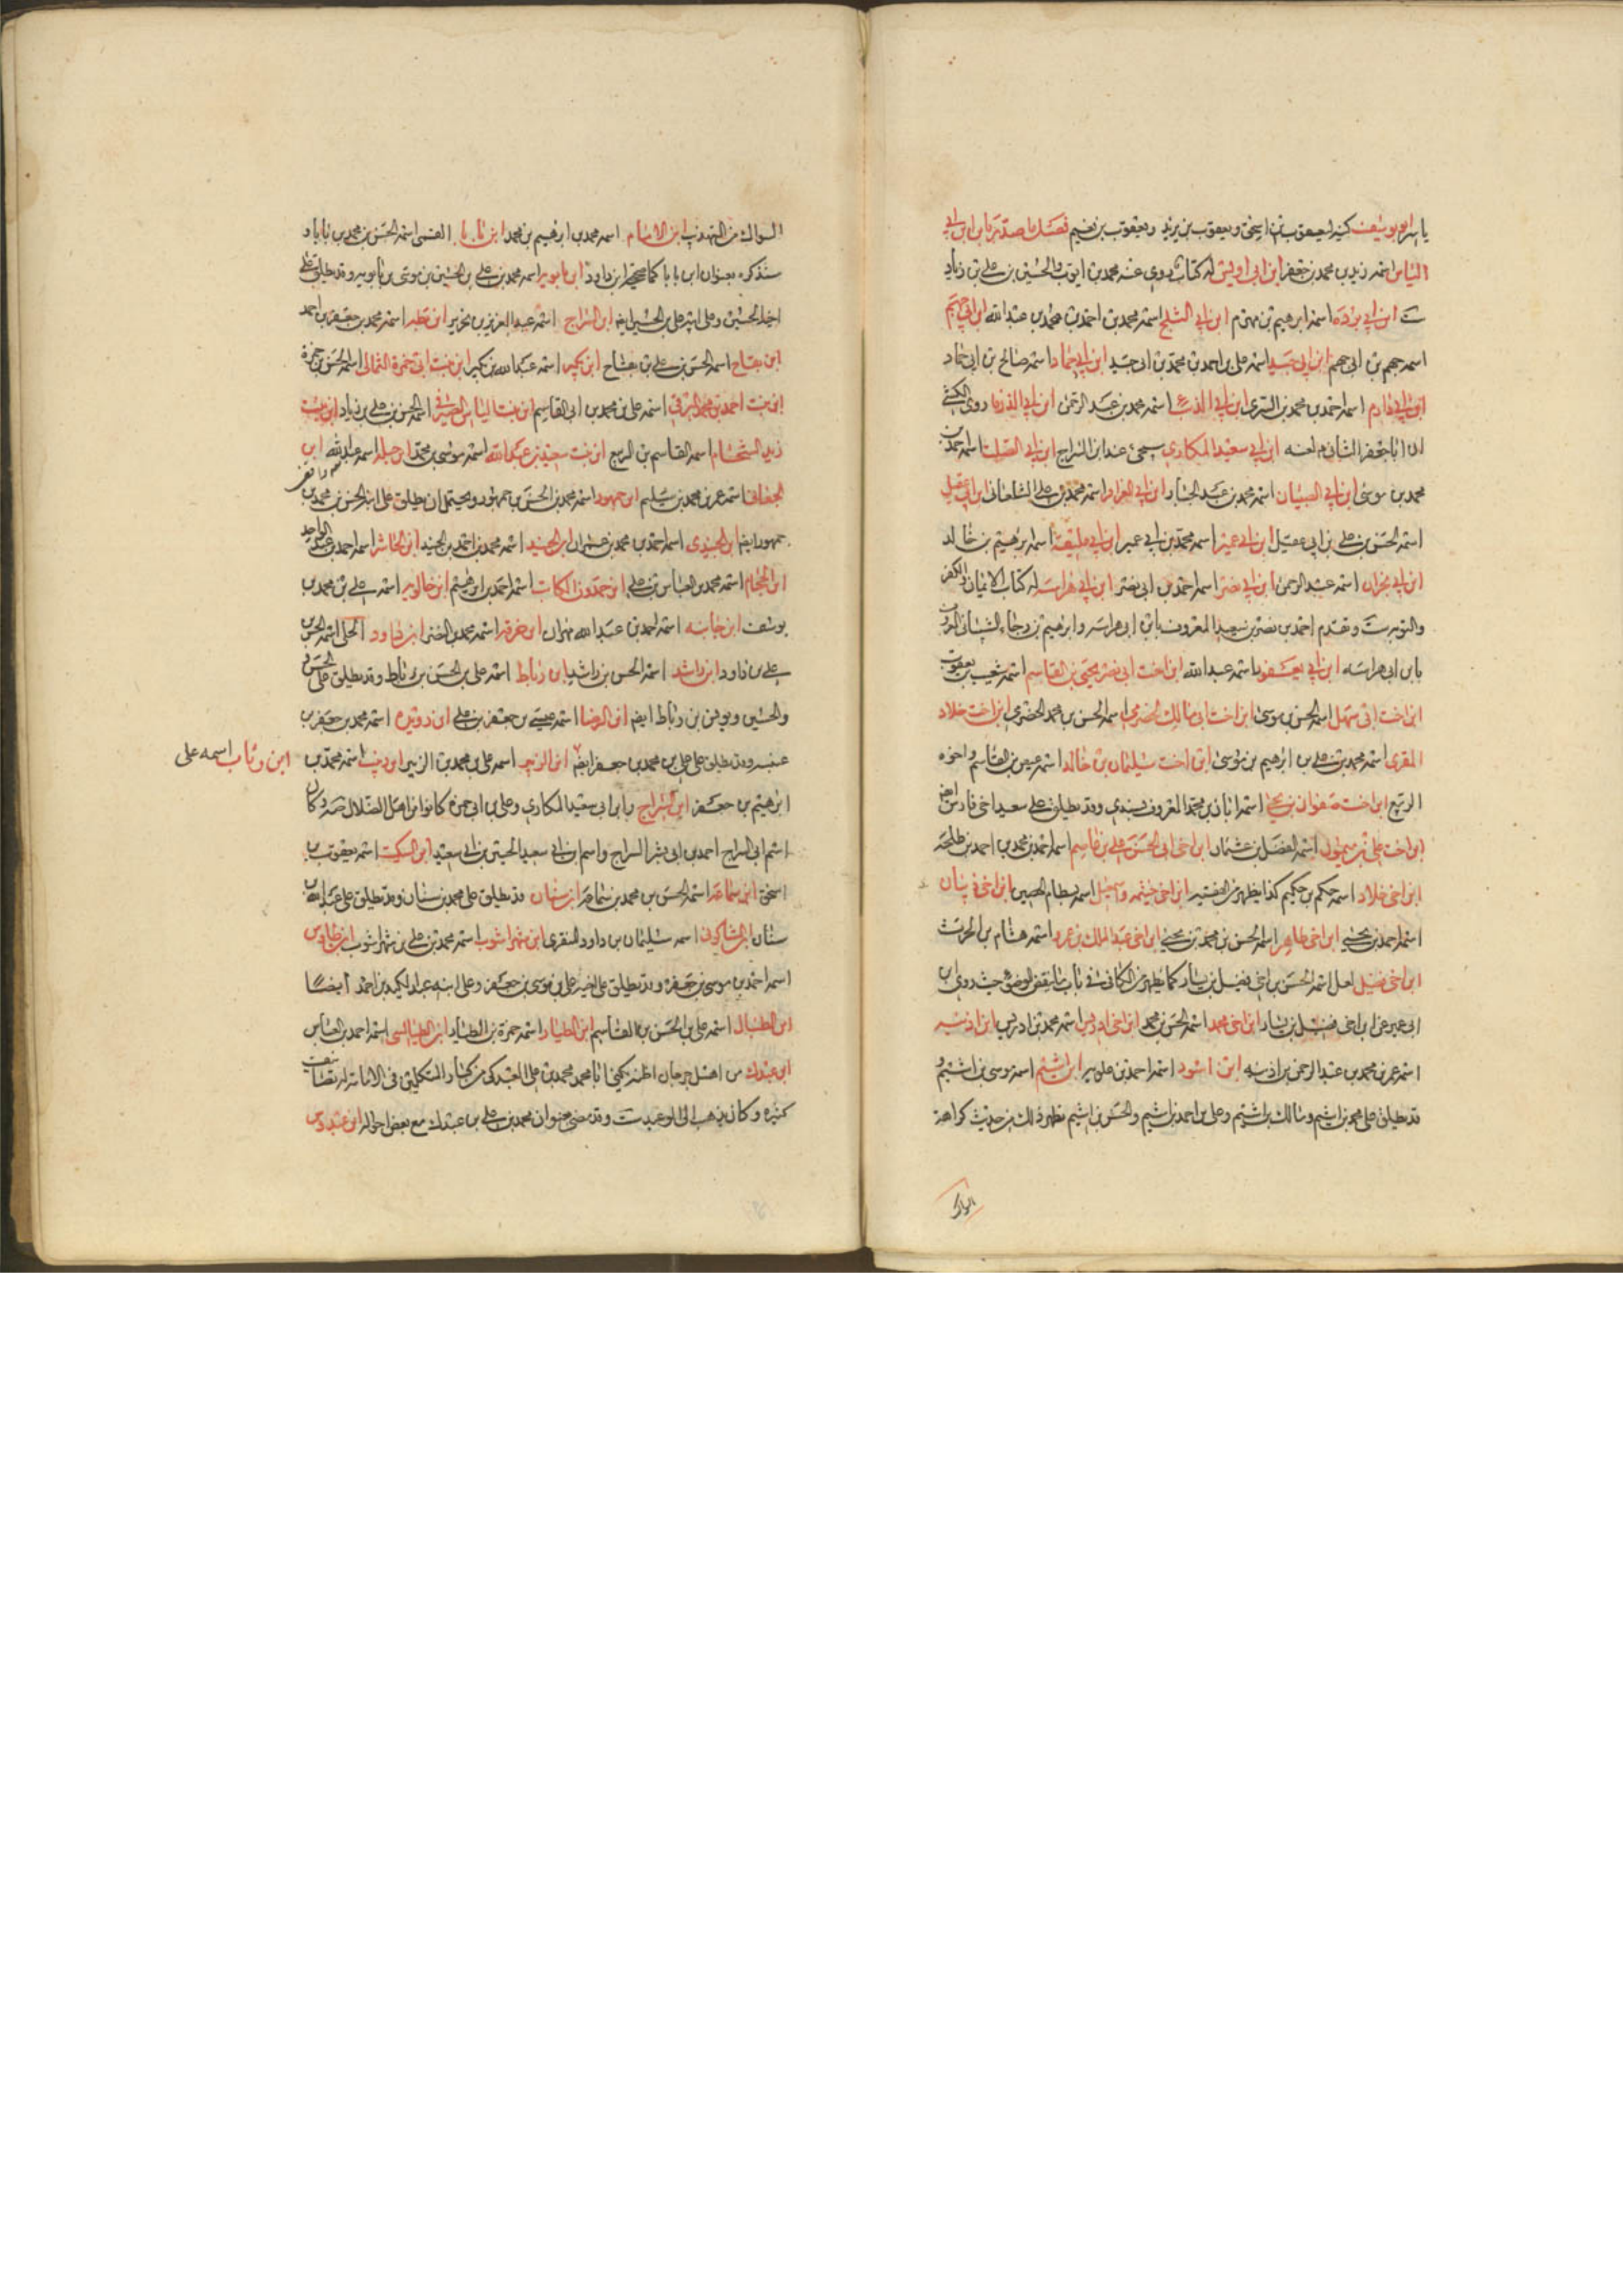 ياسر ابو يوسف كنية ليعقوب بن اسحق ويعقوب بن يزيد ويعقوب بن نعيم فصل ما صدر بابن ابن ابي
الياس اسمه زيد بن محمد بن جعفر ابن ابي اويس له كتاب روى عنه محمد بن ايوب والحسين بن علي بن زياد
ست ابن ابي بردة اسمه ابرهيم بن مهزم ابن ابي الثلج اسمه محمد بن احمد بن محمد بن عبد الله ابن ابي جهم
اسمه جهم بن ابي جهم ابن ابي جيد اسمه علي بن احمد بن محمد بن ابي جيد ابن ابي حماد اسمه صالح بن ابي حماد
اسمه احمد بن محمد بن السري ابن ابي اسمه محمد بن عبد الرحمن ابن ابي روى الكشي
ان ابا جعفر الثاني ع لعنه ابن ابي سعيد المكاري سيجيء عند ابن السراج ابن ابي الصلت اسمه احمد بن
محمد بن موسى ابن ابي اسمه محمد بن عبد الجبار ابن ابي العزاقر اسمه محمد بن علي الشلمغاني ابن ابي عقيل
اسمه الحسن بن علي بن ابي عقيل ابن ابي عمير اسمه محمد بن ابي عمير ابن ابي مليقة اسمه ابرهيم بن خالد
ابن ابي نجران اسمه عبد الرحمن ابن ابي نصر اسمه احمد بن ابي نصر ابن ابي هراسه له كتاب الايمان والكفر
والتوبه ست وتقدم احمد بن نصر بن سعيد المعروف بابن ابي هراسه وابرهيم بن رجاء الشيباني المعروف
بابن ابي هراسه ابن ابي يعفور اسمه عبد الله ابن اخت ابي بصير يحيى بن القاسم اسمه شعيب بن يعقوب
ابن اخت ابي سهل اسمه الحسن بن موسى ابن اخت ابي مالك الحضرمي اسمه الحسن بن محمد الحضرمي ابن اخت خلاد
المقري اسمه محمد بن علي بن ابرهيم بن موسى ابن اخت سليمان بن خالد اسمه عيص بن القاسم واخوه
الربيع ابن اخت صفوان بن يحيى اسمه ابان بن محمد المعروف بسندي وقد يطلق على سعيد اخي فارس ايضا
ابن اخت علي بن ميمون اسمه الفضل بن عثمان ابن اخي ابي الحسن علي بن عاصم اسمه احمد بن محمد بن احمد بن طلحة
ابن اخي خلاد اسمه حكم بن حكيم كذا يظهر من الفقيه ابن اخي خيثمه واسمعيل اسمه بسطام الحصين ابن اخي ذبيان
اسمه احمد بن يحيى ابن اخي طاهر اسمه الحسن بن محمد بن يحيى ابن اخي عبد الملك بن عمرو اسمه هشام بن الحرث
ابن اخي فضيل لعل اسمه الحسن بن اخي فضيل بن يسار كما يظهر من الكافي في باب ما ينقض الوضوء حيث روى ابن
ابي عمير عن ابن اخي فضيل بن يسار ابن اخي محمد اسمه الحسن بن محمد ابن اخي ادريس اسمه محمد بن ادريس ابن اذينه
اسمه عمر بن محمد بن عبد الرحمن بن اذينه ابن اسود اسمه احمد بن علويه ابن اشيم اسمه موسى بن اشيم و
قد يطلق على محمد بن اشيم ومالك بن اشيم وعلي بن احمد بن اشيم والحسن بن اشيم يظهر ذلك من حديث كراهة
السواك
السواك من التهذيب ابن الامام اسمه محمد بن ابرهيم بن محمد ابن بابا القمي اسمه الحسن بن محمد بن بابا و
سنذكره بعنوان ابن بابا كما صححه ابن داود ابن بابويه اسمه محمد بن علي بن الحسين بن موسى بن بابويه وقد يطلق على
اخيه الحسين وعلى ابيه علي بن الحسين ايضا ابن البراج اسمه عبد العزيز بن نحرير ابن بطه اسمه محمد بن جعفر بن احمد
ابن بقاح اسمه الحسن بن علي بن بقاح ابن بكير اسمه عبد الله بن بكير ابن بنت ابي حمزة الثمالي اسمه الحسن بن حمزة
ابن بنت احمد بن محمد البرقي اسمه علي بن محمد بن ابي القاسم ابن بنت الياس الصيرفي اسمه الحسن بن علي بن زياد ابن بنت
زيد الشحام اسمه القاسم بن الربيع ابن بنت سعيد بن عبد الله اسمه موسى بن محمد ابن جبلة اسمه عبد الله ابن
الجعابي اسمه عمر بن محمد بن سليم ابن جمهور اسمه محمد بن الحسن بن جمهور ويحتمل ان يطلق على ابنه الحسن بن محمد بن
جمهور ايضا ابن الجندي اسمه احمد بن محمد بن عمران ابن الجنيد اسمه محمد بن احمد بن الجنيد ابن الحاشر اسمه احمد بن عبد الواحد
ابن الحجام اسمه محمد بن العباس بن علي ابن حمدون الكاتب اسمه احمد بن ابرهيم ابن خالويه اسمه علي بن محمد بن
يوسف ابن خانبه اسمه احمد بن عبد الله مهران ابن خرقه اسمه محمد بن الخضر ابن داود الحلي اسمه الحسن بن
علي بن داود ابن راشد اسمه الحسن بن راشد ابن رباط اسمه علي بن الحسن بن رباط وقد يطلق على الحسن
والحسين ويونس بن رباط ايضا ابن الرضا اسمه عيسى بن جعفر بن علي ابن رويده اسمه محمد بن جعفر بن
عنبسه وقد يطلق على علي بن محمد بن جعفر ايضا ابن الزبير اسمه علي بن محمد بن الزبير ابن اسمه محمد بن
ابن وثاب اسمه على
ابرهيم بن جعفر ابن السراج وابن ابي سعيد المكاري وعلي بن ابي حمزة كانوا من اهل الضلال صه وكان
اسم ابن السراج احمد بن ابي بشر السراج واسم ابن ابي سعيد الحسين بن ابي سعيد ابن السكيت اسمه يعقوب بن
اسحق ابن سماعه اسمه الحسن بن محمد بن سماعه ابن سنان قد يطلق على محمد بن سنان وقد يطلق على عبد الله بن
سنان ابن الشاذكوني اسمه سليمان بن داود المنقري ابن شهراشوب اسمه محمد بن علي بن شهراشوب ابن طاوس
اسمه احمد بن موسى بن جعفر وقد يطلق على اخيه علي بن موسى بن جعفر وعلى ابنه عبد الكريم بن احمد ايضا
ابن الطبال اسمه علي بن الحسن بن القاسم ابن الطيار اسمه حمزة بن الطيار ابن الطيالسي اسمه احمد بن العباس
ابن عبدك من اهل جرجان اظنه يكنى ابا محمد محمد بن علي العبدكي من كبار المتكلمين في الامامة له تصانيف
كثيرة وكان يذهب الى الوعيد ست وقد مضى بعنوان محمد بن علي بن عبدك مع بعض احواله ابن عبدوس